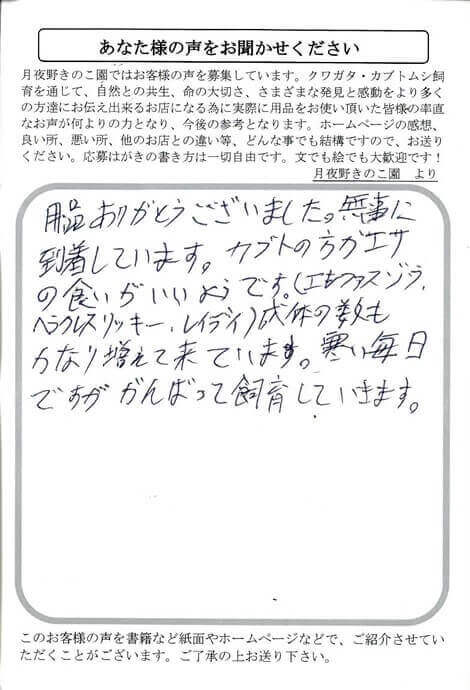 あなた様の声をお聞かせください
月夜野きのこ園ではお客様の声を募集しています。クワガタ・カブトムシ飼
育を通じて、自然との共生、命の大切さ、さまざまな発見と感動をより多く
の方達にお伝え出来るお店になる為に実際に用品をお使い頂いた皆様の率直
なお声が何よりの力となり、今後の参考となります。ホームページの感想、
良い所、悪い所、他のお店との違い等、どんな事でも結構ですので、お送り
ください。応募はがきの書き方は一切自由です。文でも絵でも大歓迎です！
月夜野きのこ園　より
用品ありがとうございました。無事に
到着しています。カブトの方がエサ
の食いがいいようです。(エセファスゾウ、
ヘラクレスリッキー、レイディ)成体の数も
かなり増えて来ています。寒い毎日
ですが がんばって飼育していきます。
このお客様の声を書籍など紙面やホームページなどで、ご紹介させてい
ただくことがございます。ご了承の上お送り下さい。